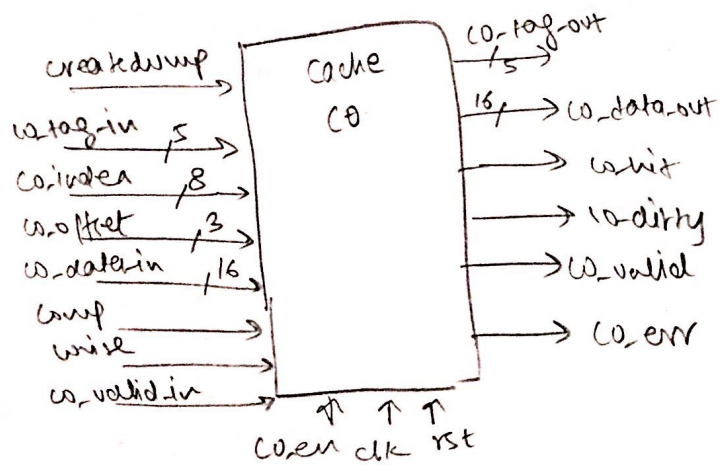 createdump
Cache
C0
c0_tag_in
5
c0_index
8
c0_offset
3
c0_data_in
16
comp
write
c0_valid_in
c0_tag_out
5
16
c0_data_out
c0_hit
c0_dirty
c0_valid
c0_err
c0_en clk rst